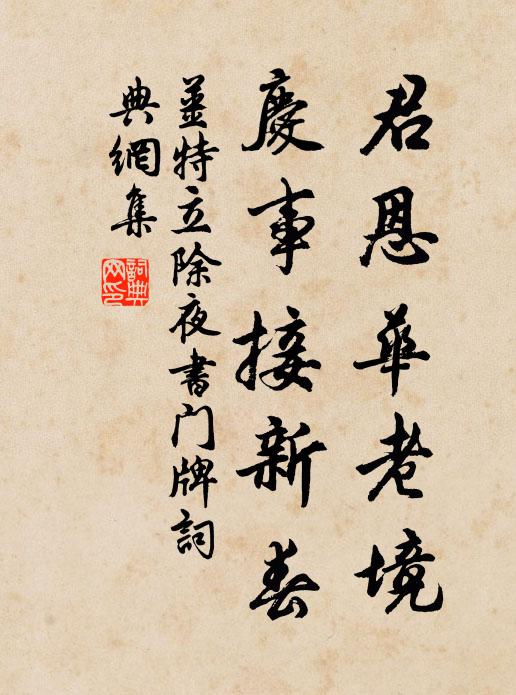 君恩華老境
慶事接新春
姜特立除夜書門牌詞
典網集
詞典
网印